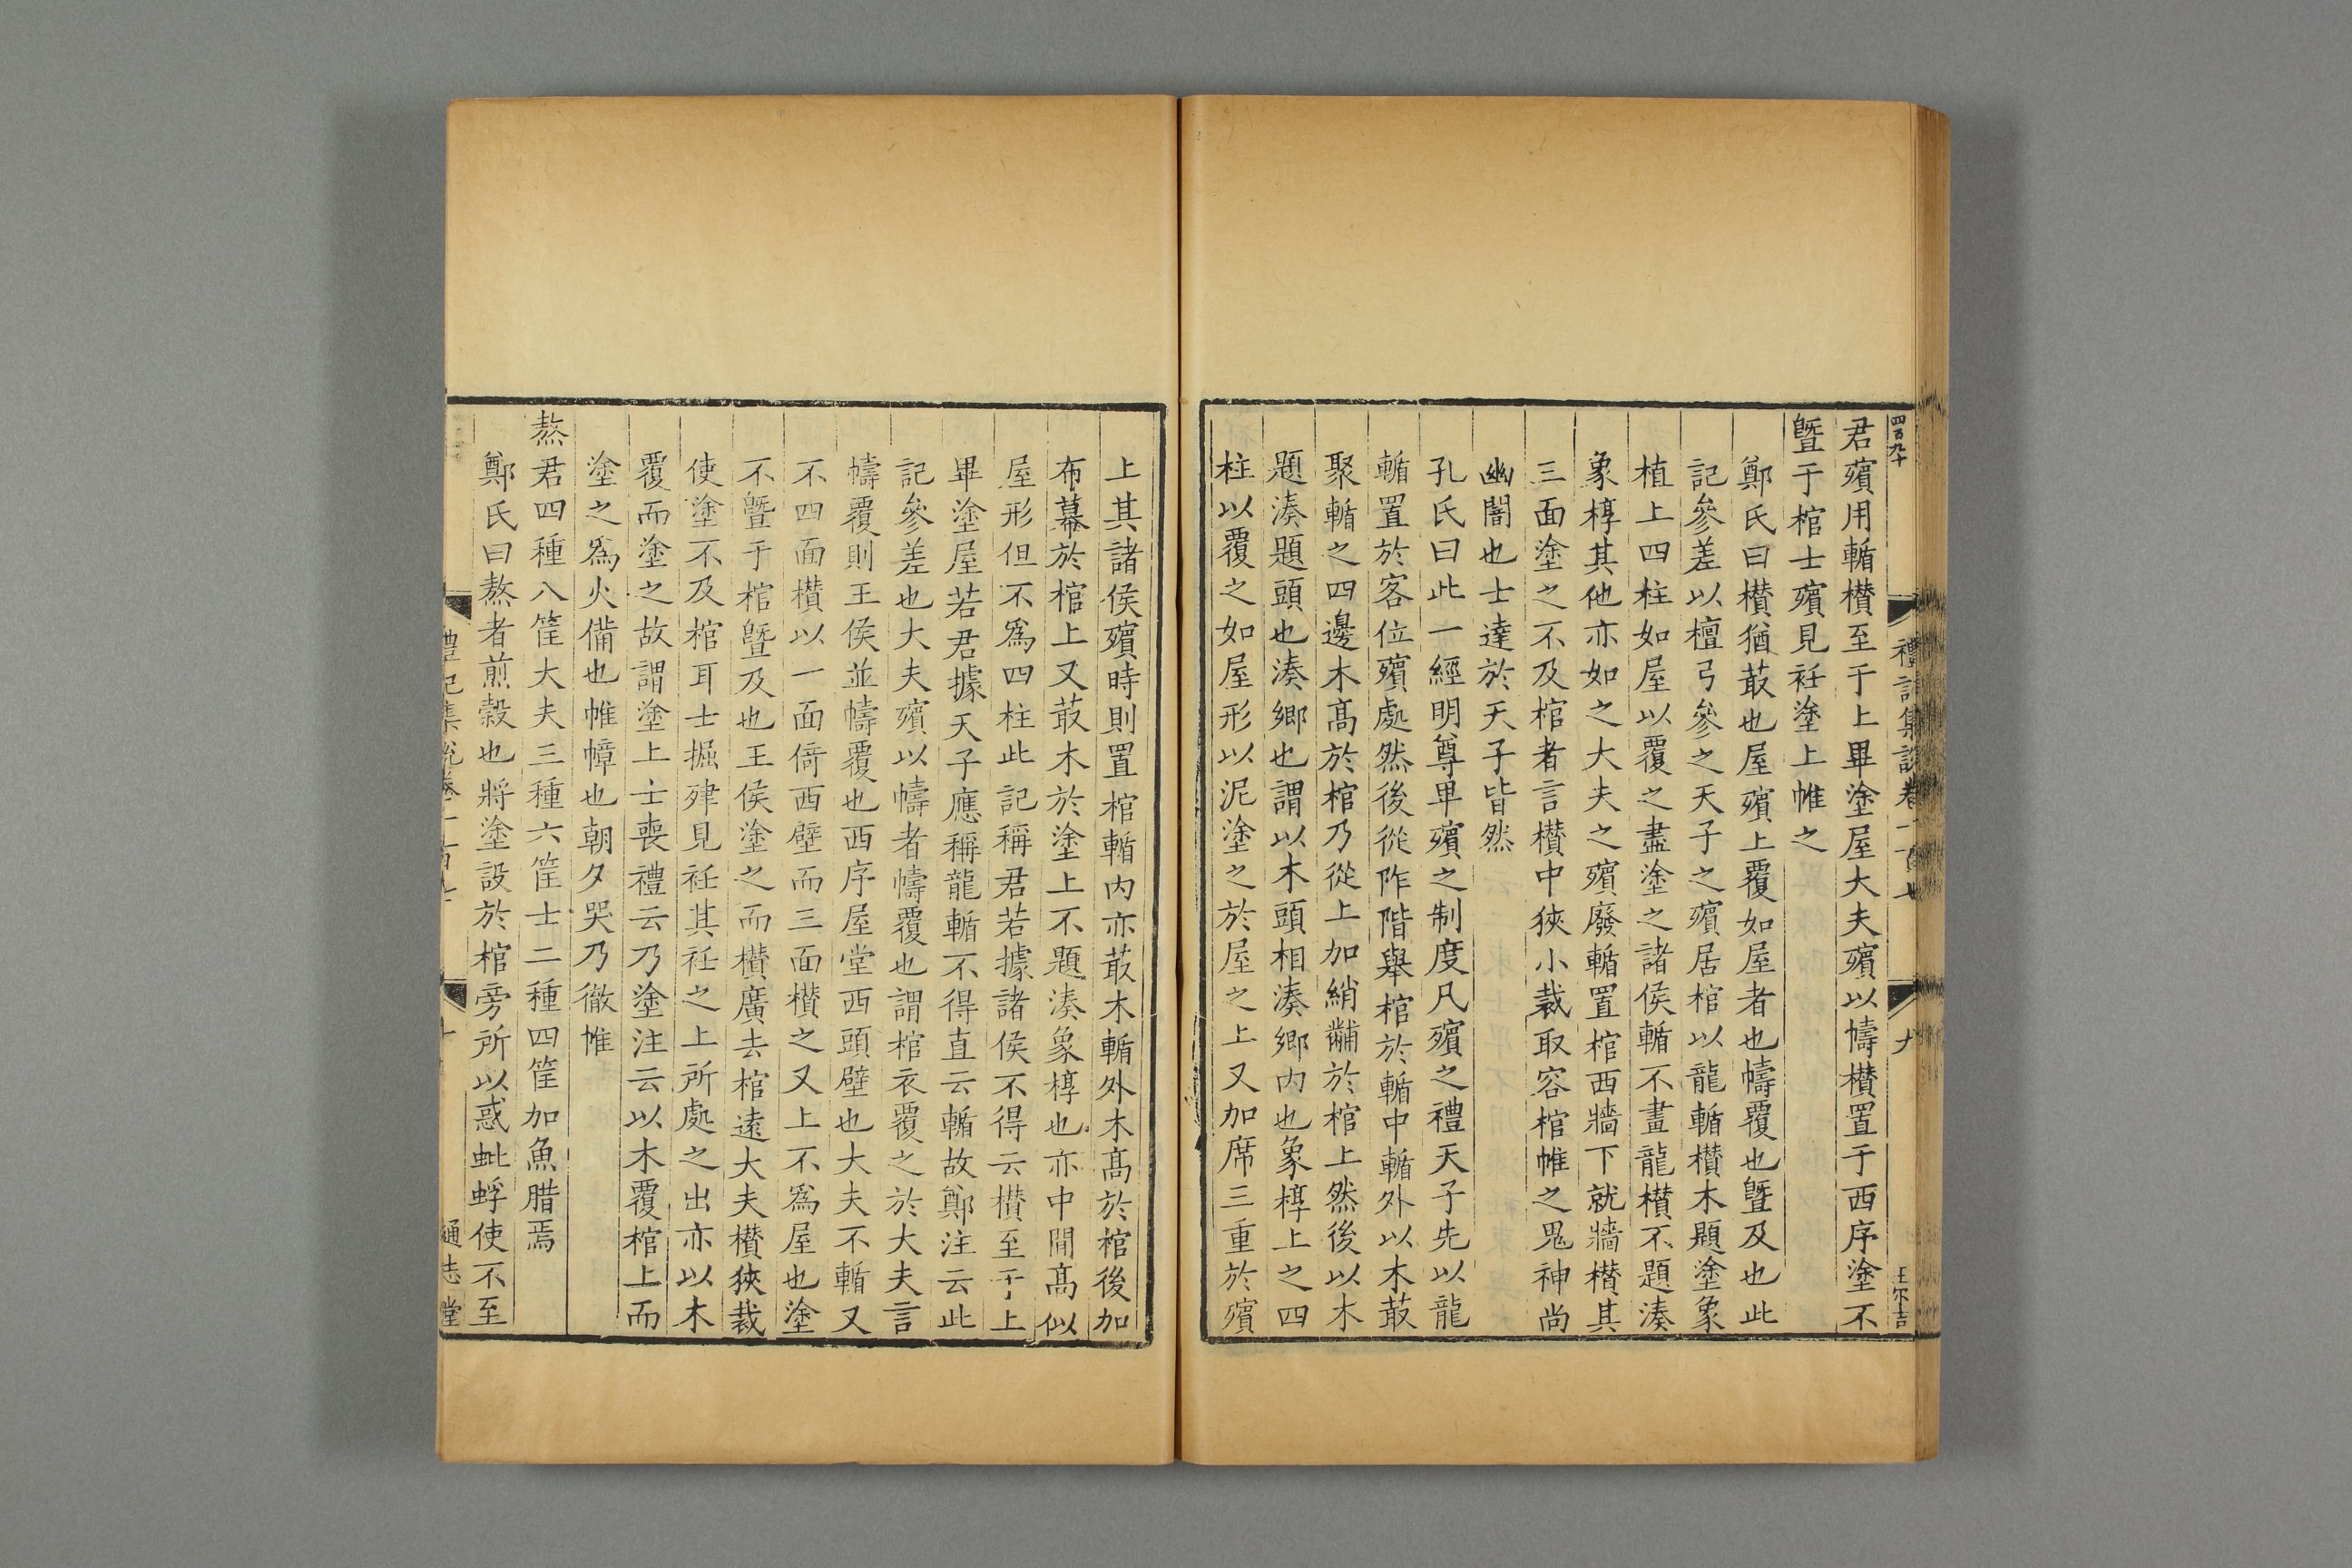 四百九十
禮記集說卷一百七
九
王尔吉
君殯用輴欑至于上畢塗屋大夫殯以幬欑置于西序塗不
曁于棺士殯見衽塗上帷之
鄭氏曰欑猶菆也屋殯上覆如屋者也幬覆也曁及也此
記參差以檀弓參之天子之殯居棺以龍輴欑木題塗象
椁上四柱如屋以覆之盡塗之諸侯輴不畫龍欑不題湊
象椁其他亦如之大夫之殯廢輴置棺西牆下就牆欑其
三面塗之不及棺者言欑中狹小裁取容棺帷之鬼神尚
幽闇也士達於天子皆然
孔氏曰此一經明尊卑殯之制度凡殯之禮天子先以龍
輴置於客位殯處然後從阼階舉棺於輴中輴外以木菆
聚輴之四邊木高於棺乃從上加綃黼於棺上然後以木
題湊題頭也湊鄉也謂以木頭相湊鄉内也象椁上之四
柱以覆之如屋形以泥塗之於屋之上又加席三重於殯
上其諸侯殯時則置棺輴内亦菆木輴外木高於棺後加
布幕於棺上又菆木於塗上不題湊象椁也亦中間高似
屋形但不爲四柱此記稱君若據諸侯不得云欑至于上
畢塗屋若君據天子應稱龍輴不得直云輴故鄭注云此
記參差也大夫殯以幬者幬覆也謂棺衣覆之於大夫言
幬覆則王侯並幬覆也西序屋堂西頭壁也大夫不輴又
不四面欑以一面倚西壁而三面欑之又上不爲屋也塗
不曁于棺曁及也王侯塗之而欑廣去棺遠大夫欑狹裁
使塗不及棺耳士掘肂見衽其衽之上所處之出亦以木
覆而塗之故謂塗上士喪禮云乃塗注云以木覆棺上而
塗之爲火備也帷幛也朝夕哭乃徹帷
熬君四種八筐大夫三種六筐士二種四筐加魚腊焉
鄭氏曰熬者煎穀也將塗設於棺旁所以惑蚍蜉使不至
禮記集說卷一百七
十
通志堂